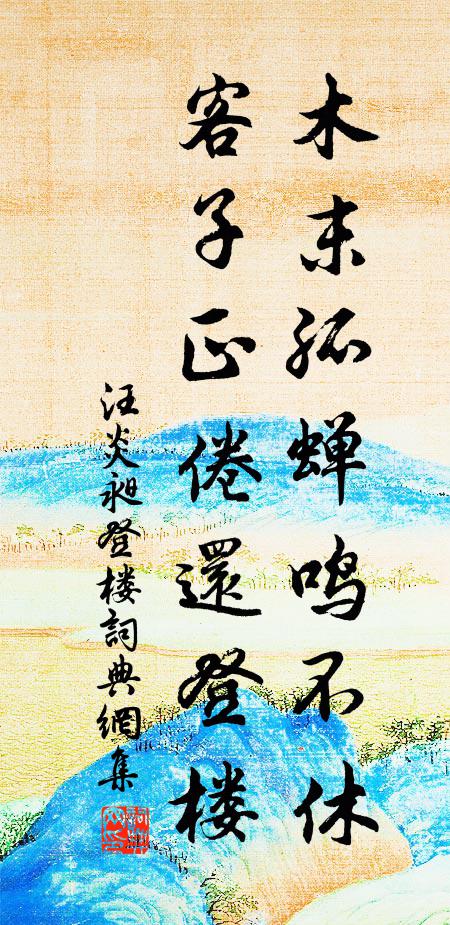 木末孤蝉鸣不休
客子正倦還登楼
汪炎昶登楼詞典網集